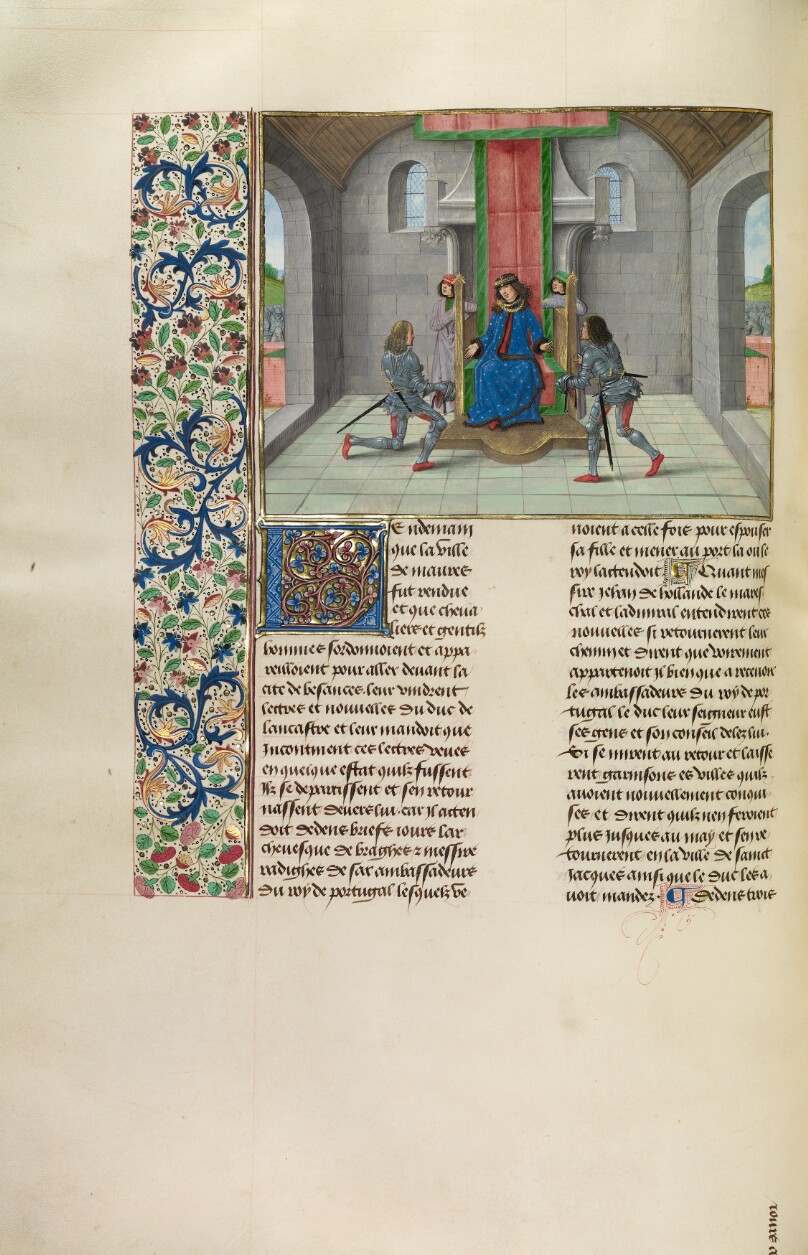 E ndemain
que la ville
de maures
fut rendue
et que cheua
liers et gentilz
hommes sordonnoient et appa
reilloient pour aller deuant la
cite de besances leur vindrent
lectres et nouuelles du duc de
lancastre et leur mandoit que
Incontinent ces lectres veues
en quelque estat quilz fussent
Ilz se departissent et sen retour
nassent deuers lui. car Il atten
doit dedens briefz iours lar
cheuesque de braghes z messire
radighes de sar ambassadeurs
du roy de portugal lesquelz ve
noient a celle fois pour espouser
sa fille et mener au port la ou le
roy lactendoit Quant mes
sire jehan de hollande le mares
chal et ladmiral entendirent ces
nouuelles si retournerent leur
chemin et dirent que voirement
appartenoit Il bien que a receuoir
les ambassadeurs du roy de por
tugal le duc leur seigneur eust
ses gens et son conseil delez lui.
Si se mirent au retour et laisse
rent garnisons es villes quilz
auoient nouuellement conqui
ses et dirent quilz nen feroient
plus Jusques au may et senre
tournerent en la ville de sainct
Jacques ainsi que le duc les a
uoit mandez. Dedens trois